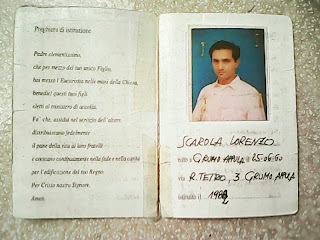 Preghiera di istituzione
Padre clementissimo,
che per mezzo del tuo unico Figlio,
hai messo l'Eucaristia nelle mani della Chiesa,
benedici questi tuoi figli
eletti al ministero di accoliti.
Fa' che, assidui nel servizio dell'altare,
distribuiscano fedelmente
il pane della vita ai loro fratelli
e crescano continuamente nella fede e nella carità
per l'edificazione del tuo Regno.
Per Cristo nostro Signore.
Amen.
SCAROLA LORENZO
nato a GRUMO APPULA il 25-06-60
via R. TETRO, 3. GRUMO APPULA
istituito il